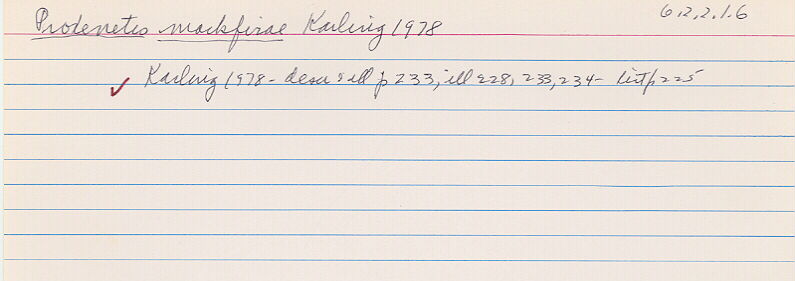 Prodenetes mackfirae Karling 1978 6.2.2.1.6
✓ Karling 1978 - descr & ill p 233, ill 228, 233, 234 - list p 225